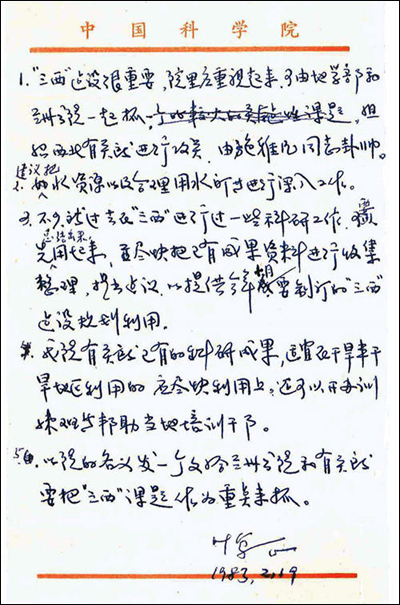 中国科学院
1. "三西"建设很重要，院里应重视起来，可由地学部和
兰州分院一起抓，一个比较大的
组织西北有关所进行攻关，由施雅风同志挂帅。
建议把
2. 水资源以及合理用水问题进行深入工作。
3. 不少所过去在"三西"进行过一些科研工作，需
总结出来
先用起来，应尽快把已有成果资料进行收集
整理，提出建议，以提供今年 要制订的"三西"
建设规划利用。
4. 我院有关所已有的科研成果，适宜在干旱半干
旱地区利用的应尽快利用上，还可以开办训
练班等帮助当地培训干部。
5. 以院的名义发一个文给兰州分院和有关所
要把"三西"课题作为重点来抓。
叶笃正
1983.2.19